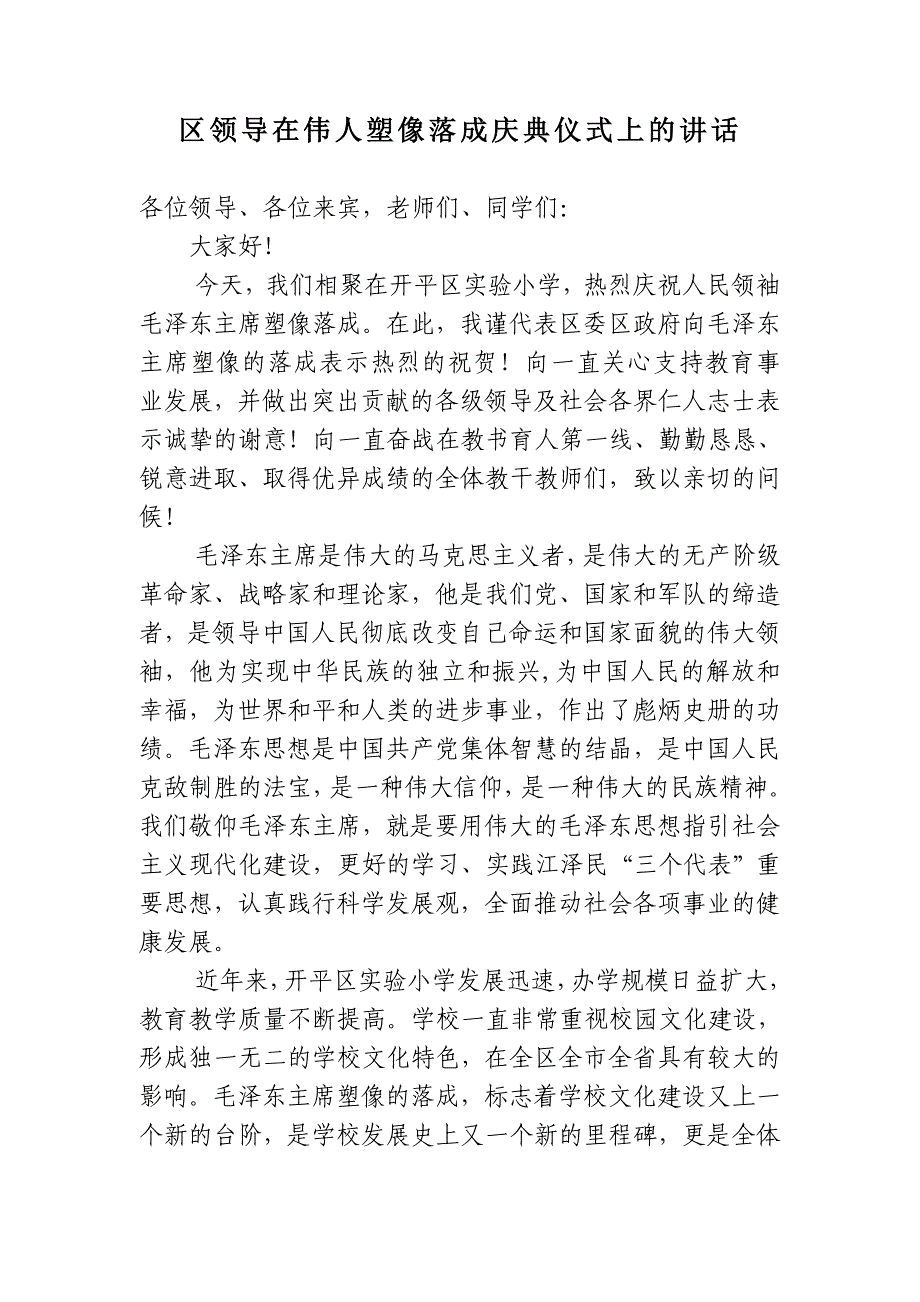 区领导在伟人塑像落成庆典仪式上的讲话
各位领导、各位来宾，老师们、同学们：
大家好！
今天，我们相聚在开平区实验小学，热烈庆祝人民领袖
毛泽东主席塑像落成。在此，我谨代表区委区政府向毛泽东
主席塑像的落成表示热烈的祝贺！向一直关心支持教育事
业发展，并做出突出贡献的各级领导及社会各界仁人志士表
示诚挚的谢意！向一直奋战在教书育人第一线、勤勤恳恳、
锐意进取、取得优异成绩的全体教干教师们，致以亲切的问
候！
毛泽东主席是伟大的马克思主义者，是伟大的无产阶级
革命家、战略家和理论家，他是我们党、国家和军队的缔造
者，是领导中国人民彻底改变自己命运和国家面貌的伟大领
袖，他为实现中华民族的独立和振兴,为中国人民的解放和
幸福，为世界和平和人类的进步事业，作出了彪炳史册的功
绩。毛泽东思想是中国共产党集体智慧的结晶，是中国人民
克敌制胜的法宝，是一种伟大信仰，是一种伟大的民族精神。
我们敬仰毛泽东主席，就是要用伟大的毛泽东思想指引社会
主义现代化建设，更好的学习、实践江泽民“三个代表”重
要思想，认真践行科学发展观，全面推动社会各项事业的健
康发展。
近年来，开平区实验小学发展迅速，办学规模日益扩大，
教育教学质量不断提高。学校一直非常重视校园文化建设，
形成独一无二的学校文化特色，在全区全市全省具有较大的
影响。毛泽东主席塑像的落成，标志着学校文化建设又上一
个新的台阶，是学校发展史上又一个新的里程碑，更是全体